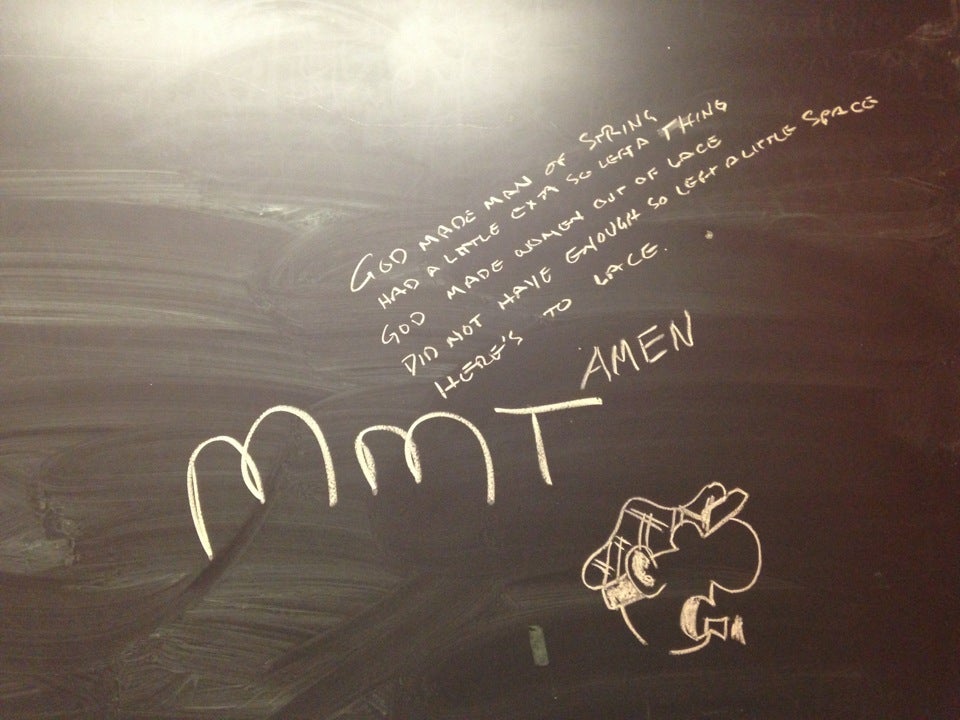 GOD MADE MAN OF STRING
HAD A LITTLE EXTA SO LEFT A THING
GOD MADE WOMEN OUT OF LACE
DID NOT HAVE ENOUGH SO LEFT A LITTLE SPACE
HERE'S TO LACE.
AMEN
MMT